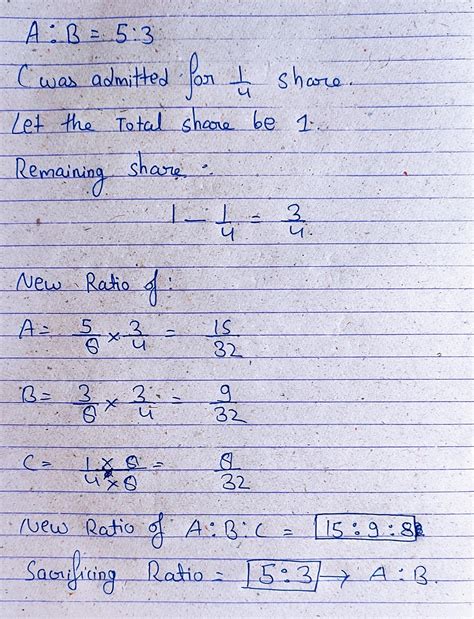 A : B = 5 : 3
C was admitted for 1/4 share.
Let the Total share be 1.
Remaining share :
1 - 1/4 = 3/4.
New Ratio of :
A = 5/8 × 3/4 = 15/32
B = 3/8 × 3/4 = 9/32
C = 1/4 × 8/8 = 8/32
New Ratio of A : B : C = 15 : 9 : 8
Sacrificing Ratio = 5 : 3 → A : B.